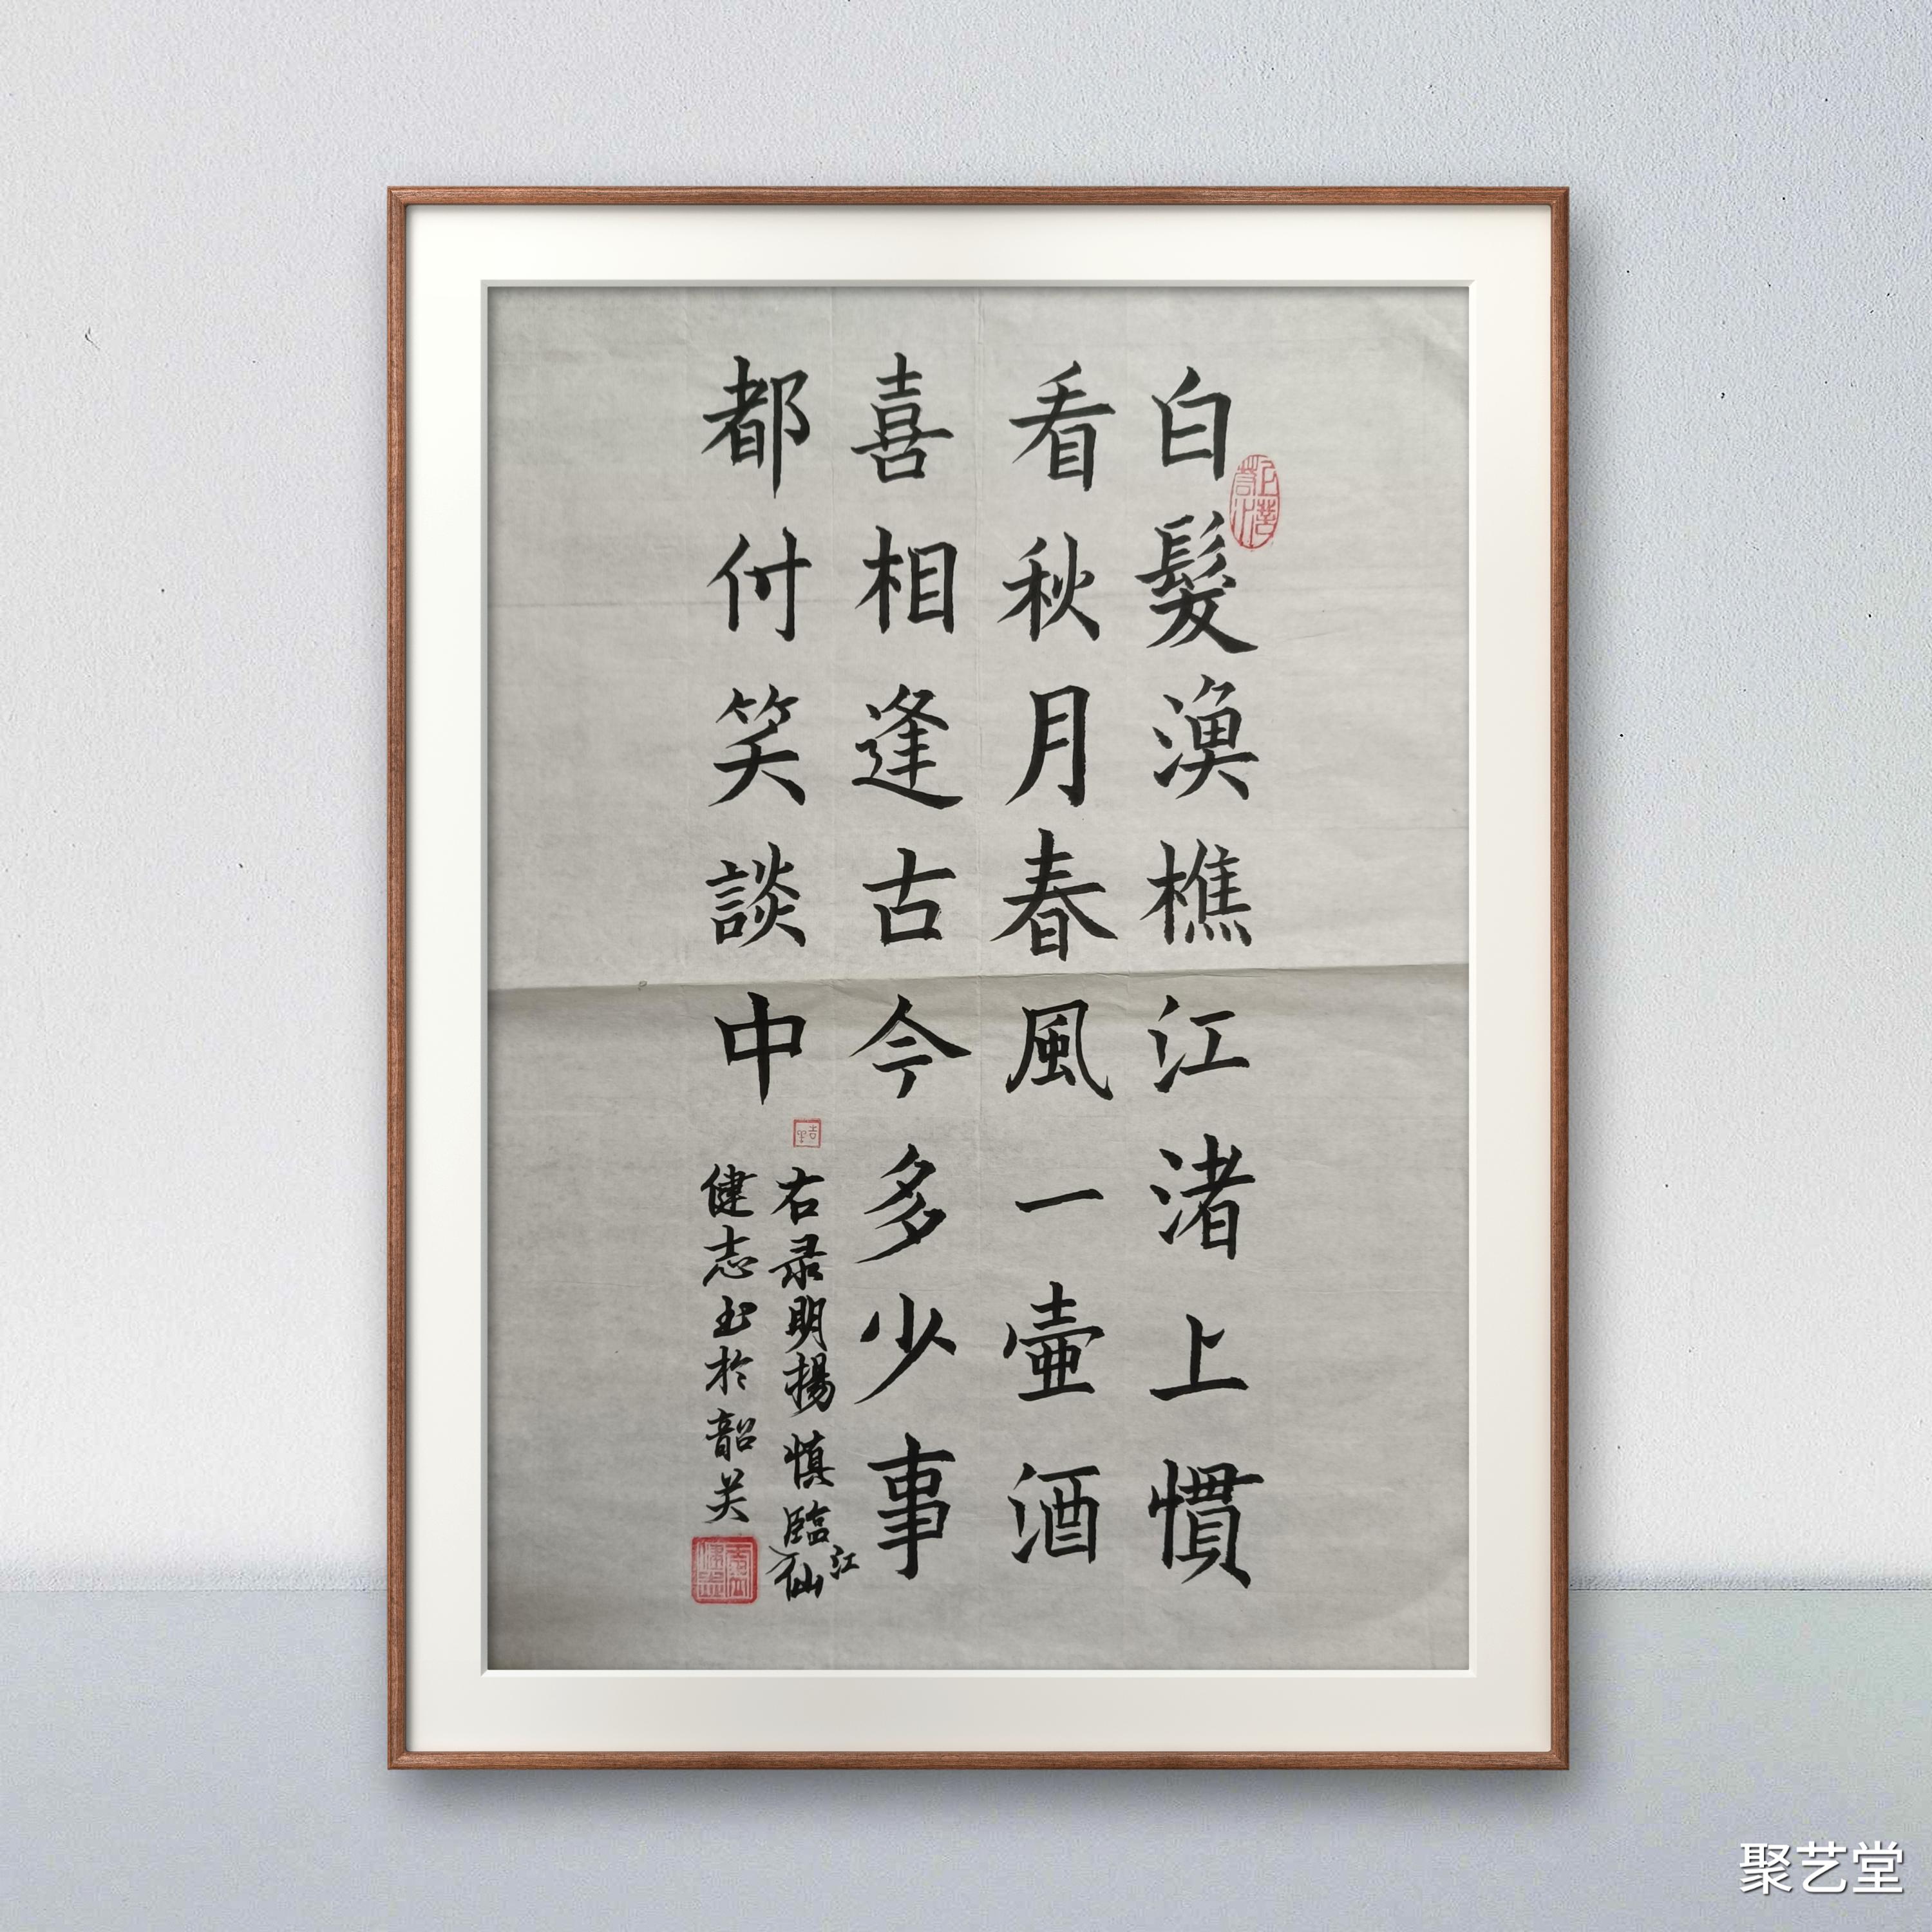 白髮漁樵江渚上慣
看秋月春風一壺酒
喜相逢古今多少事
都付笑談中
右录明楊慎臨江仙
健志书於韶关
聚艺堂